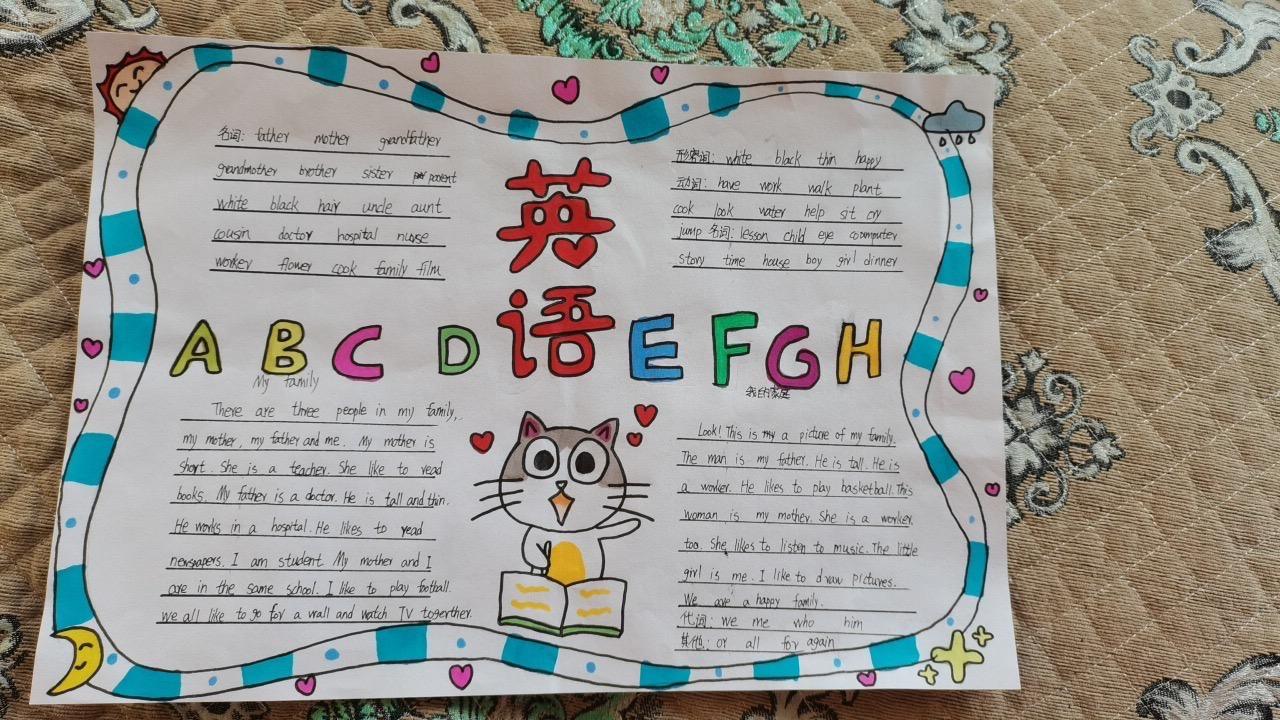 名词: father mother grandfather
grandmother brother sister parent
white black hair uncle aunt
cousin doctor hospital nurse
worker flower cook family film
英
语
形容词: white black thin happy
动词: have work walk plant
cook look water help sit cry
jump 名词: lesson child eye coumputer
story time house boy girl dinner
A B C D E F G H
My family
There are three people in my family,
my mother, my father and me. My mother is
short. She is a teacher. She like to read
books. My father is a doctor. He is tall and thin.
He works in a hospital. He likes to read
newspapers. I am student My mother and I
are in the same school. I like to play fotball.
We all like to go for a wall and watch TV togerther.
我的家庭
Look! This is my a picture of my family.
The man is my father. He is tall. He is
a worker. He likes to play basketball. This
woman is my mother. She is a worker.
too. She likes to listen to music. The little
girl is me. I like to draw pictures.
We are a happy family.
代词: we me who him
其他: or all for again